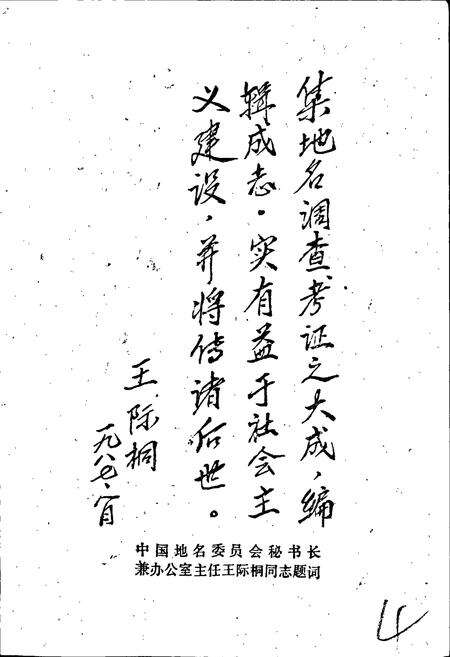 集地名调查考证之大成，编
辑成志。实有益于社会主
义建设，并将传诸后世。
王际桐
一九八七、六月
中国地名委员会秘书长
兼办公室主任王际桐同志题词
4